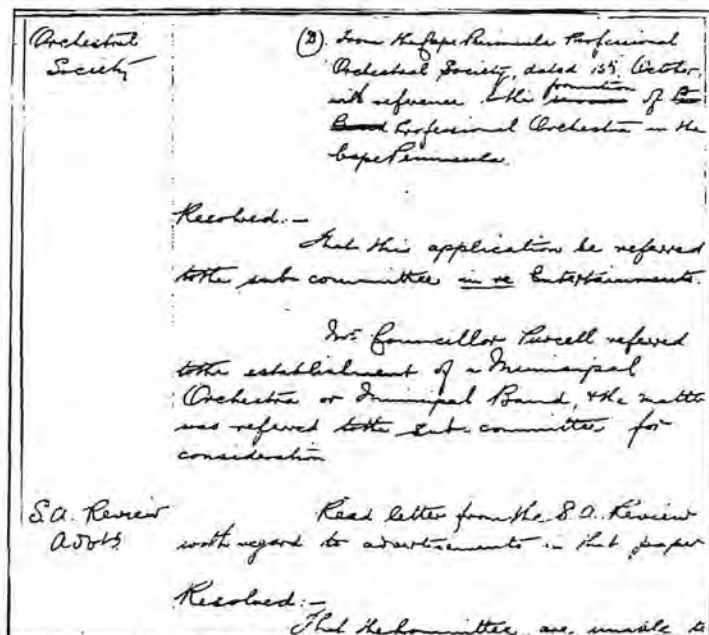 Orchestral
Society
(B) From the Cape Peninsula Professional
Orchestral Society, dated 15th October,
with reference to the formation of
Professional Orchestra in the
Cape Peninsula.
Resolved:-
That this application be referred
to the sub committee in re Entertainments.
Mr Councillor Purcell referred
to the establishment of a Municipal
Orchestra or Municipal Band, & the matter
was referred to the sub-committee for
consideration
S.A. Review
Advts
Read letter from the S.A. Review
with regard to advertisements in that paper
Resolved:-
That the Committee are unable to